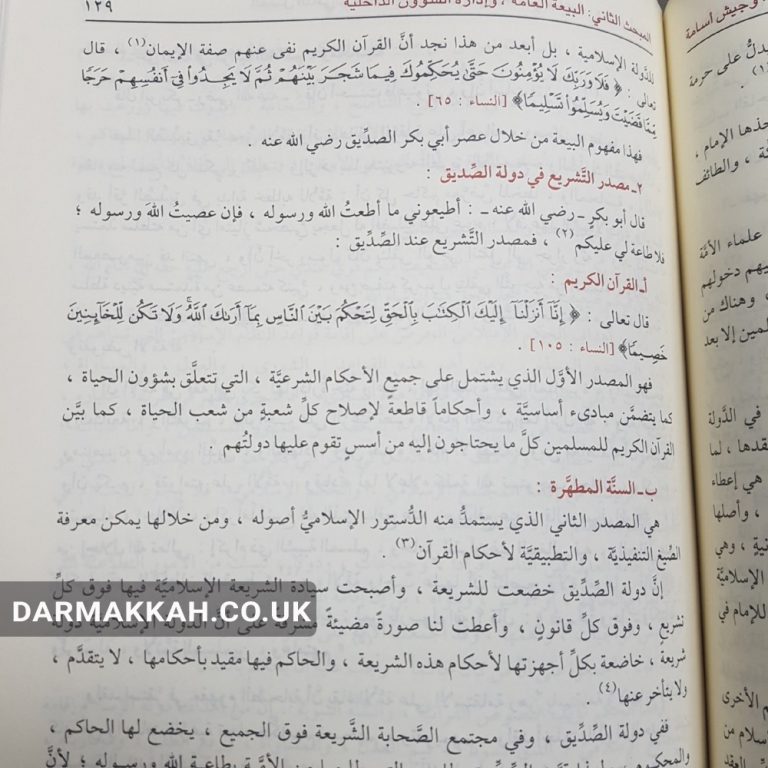 المبحث الثاني: البيعة العامة ، وإدارة الشؤون الداخلية
١٢٩
للدَّولة الإسلامية ، بل أبعد من هذا نجد أنَّ القرآن الكريم نفى عنهم صفة الإيمان(١) ، قال
تعالى : ﴿ فَلَا وَرَبِّكَ لَا يُؤْمِنُونَ حَتَّىٰ يُحَكِّمُوكَ فِيمَا شَجَرَ بَيْنَهُمْ ثُمَّ لَا يَجِدُوا فِي أَنفُسِهِمْ حَرَجًا
مِّمَّا قَضَيْتَ وَيُسَلِّمُوا تَسْلِيمًا﴾ [النساء : ٦٥] .
فهذا مفهوم البيعة من خلال عصر أبي بكر الصدِّيق رضي الله عنه .
٢ـ مصدر التَّشريع في دولة الصِّديق :
قال أبو بكرٍ ـ رضي الله عنه ـ : أطيعوني ما أطعتُ الله ورسوله ، فإن عصيتُ اللهَ ورسوله ؛
فلا طاعة لي عليكم(٢) ، فمصدر التَّشريع عند الصِّدِّيق :
أـ القرآن الكريم :
قال تعالى : ﴿ إِنَّا أَنزَلْنَا إِلَيْكَ الْكِتَابَ بِالْحَقِّ لِتَحْكُمَ بَيْنَ النَّاسِ بِمَا أَرَاكَ اللَّهُ وَلَا تَكُن لِّلْخَائِنِينَ
خَصِيمًا﴾ [النساء : ١٠٥] .
فهو المصدر الأوَّل الذي يشتمل على جميع الأحكام الشرعيَّة ، التي تتعلَّق بشؤون الحياة ،
كما يتضمَّن مبادىء أساسيَّة ، وأحكاماً قاطعةً لإصلاح كلِّ شعبةٍ من شعب الحياة ، كما بيَّن
القرآن الكريم للمسلمين كلَّ ما يحتاجون إليه من أسسٍ تقوم عليها دولتُهم .
ب ـ السنَّة المطهَّرة :
هي المصدر الثاني الذي يستمدُّ منه الدُّستور الإسلاميُّ أصوله ، ومن خلالها يمكن معرفة
الصِّيغ التنفيذيَّة ، والتطبيقيَّة لأحكام القرآن(٣) .
إنَّ دولة الصِّدِّيق خضعت للشريعة ، وأصبحت سيادة الشريعة الإسلاميَّة فيها فوق كلِّ
تشريعٍ ، وفوق كلِّ قانونٍ ، وأعطت لنا صورةً مضيئةً مشرقةً على أنَّ الدولة الإسلامية دولة
شريعة ، خاضعة بكلِّ أجهزتها لأحكام هذه الشريعة ، والحاكم فيها مقيد بأحكامها ، لا يتقدَّم ،
ولا يتأخر عنها(٤) .
ففي دولة الصِّدِّيق ، وفي مجتمع الصَّحابة الشَّريعة فوق الجميع ، يخضع لها الحاكم ،
والمحكوم
بطاعة الله ورسوله ؛ لأنَّ
DARMAKKAH.CO.UK
وجيش أسامة
يدلُّ على حرمة
خذها الإمام ،
والطائف
علماء الأمَّة
دخولهم
، وهناك من
إلا بعد
في الدَّولة
لما
هي إعطاء
، وأصلها
، وهي
الإسلاميَّة
للإمام في
الأخرى
من
العقد